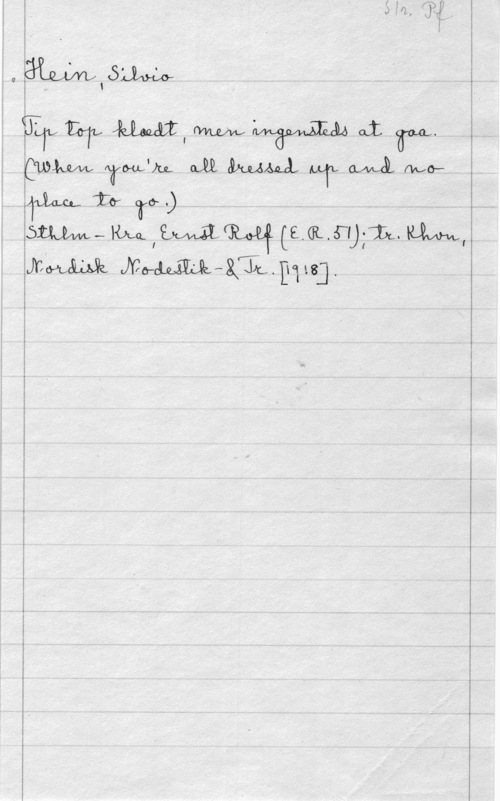 Str. Pf
Hein, Silvio
Tip top klædt, men ingensteds at gaa.
(When you're all dressed up and no
place to go.)
Sthlm-Kra, Ernst Rolf (E.R.51); tr. Khvn,
Nordisk Nodestik-& Tr. [1918].